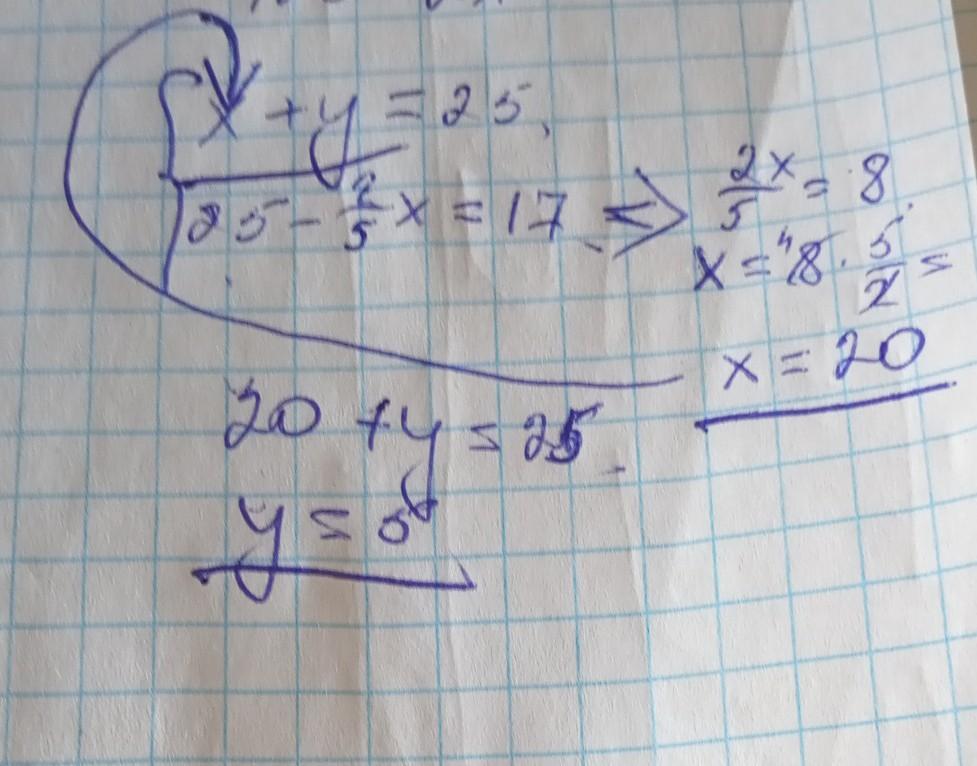 x + y = 25
25 - 2/5 x = 17 => 2/5 x = 8
x = 8 · 5/2 =
x = 20
20 + y = 25
y = 5